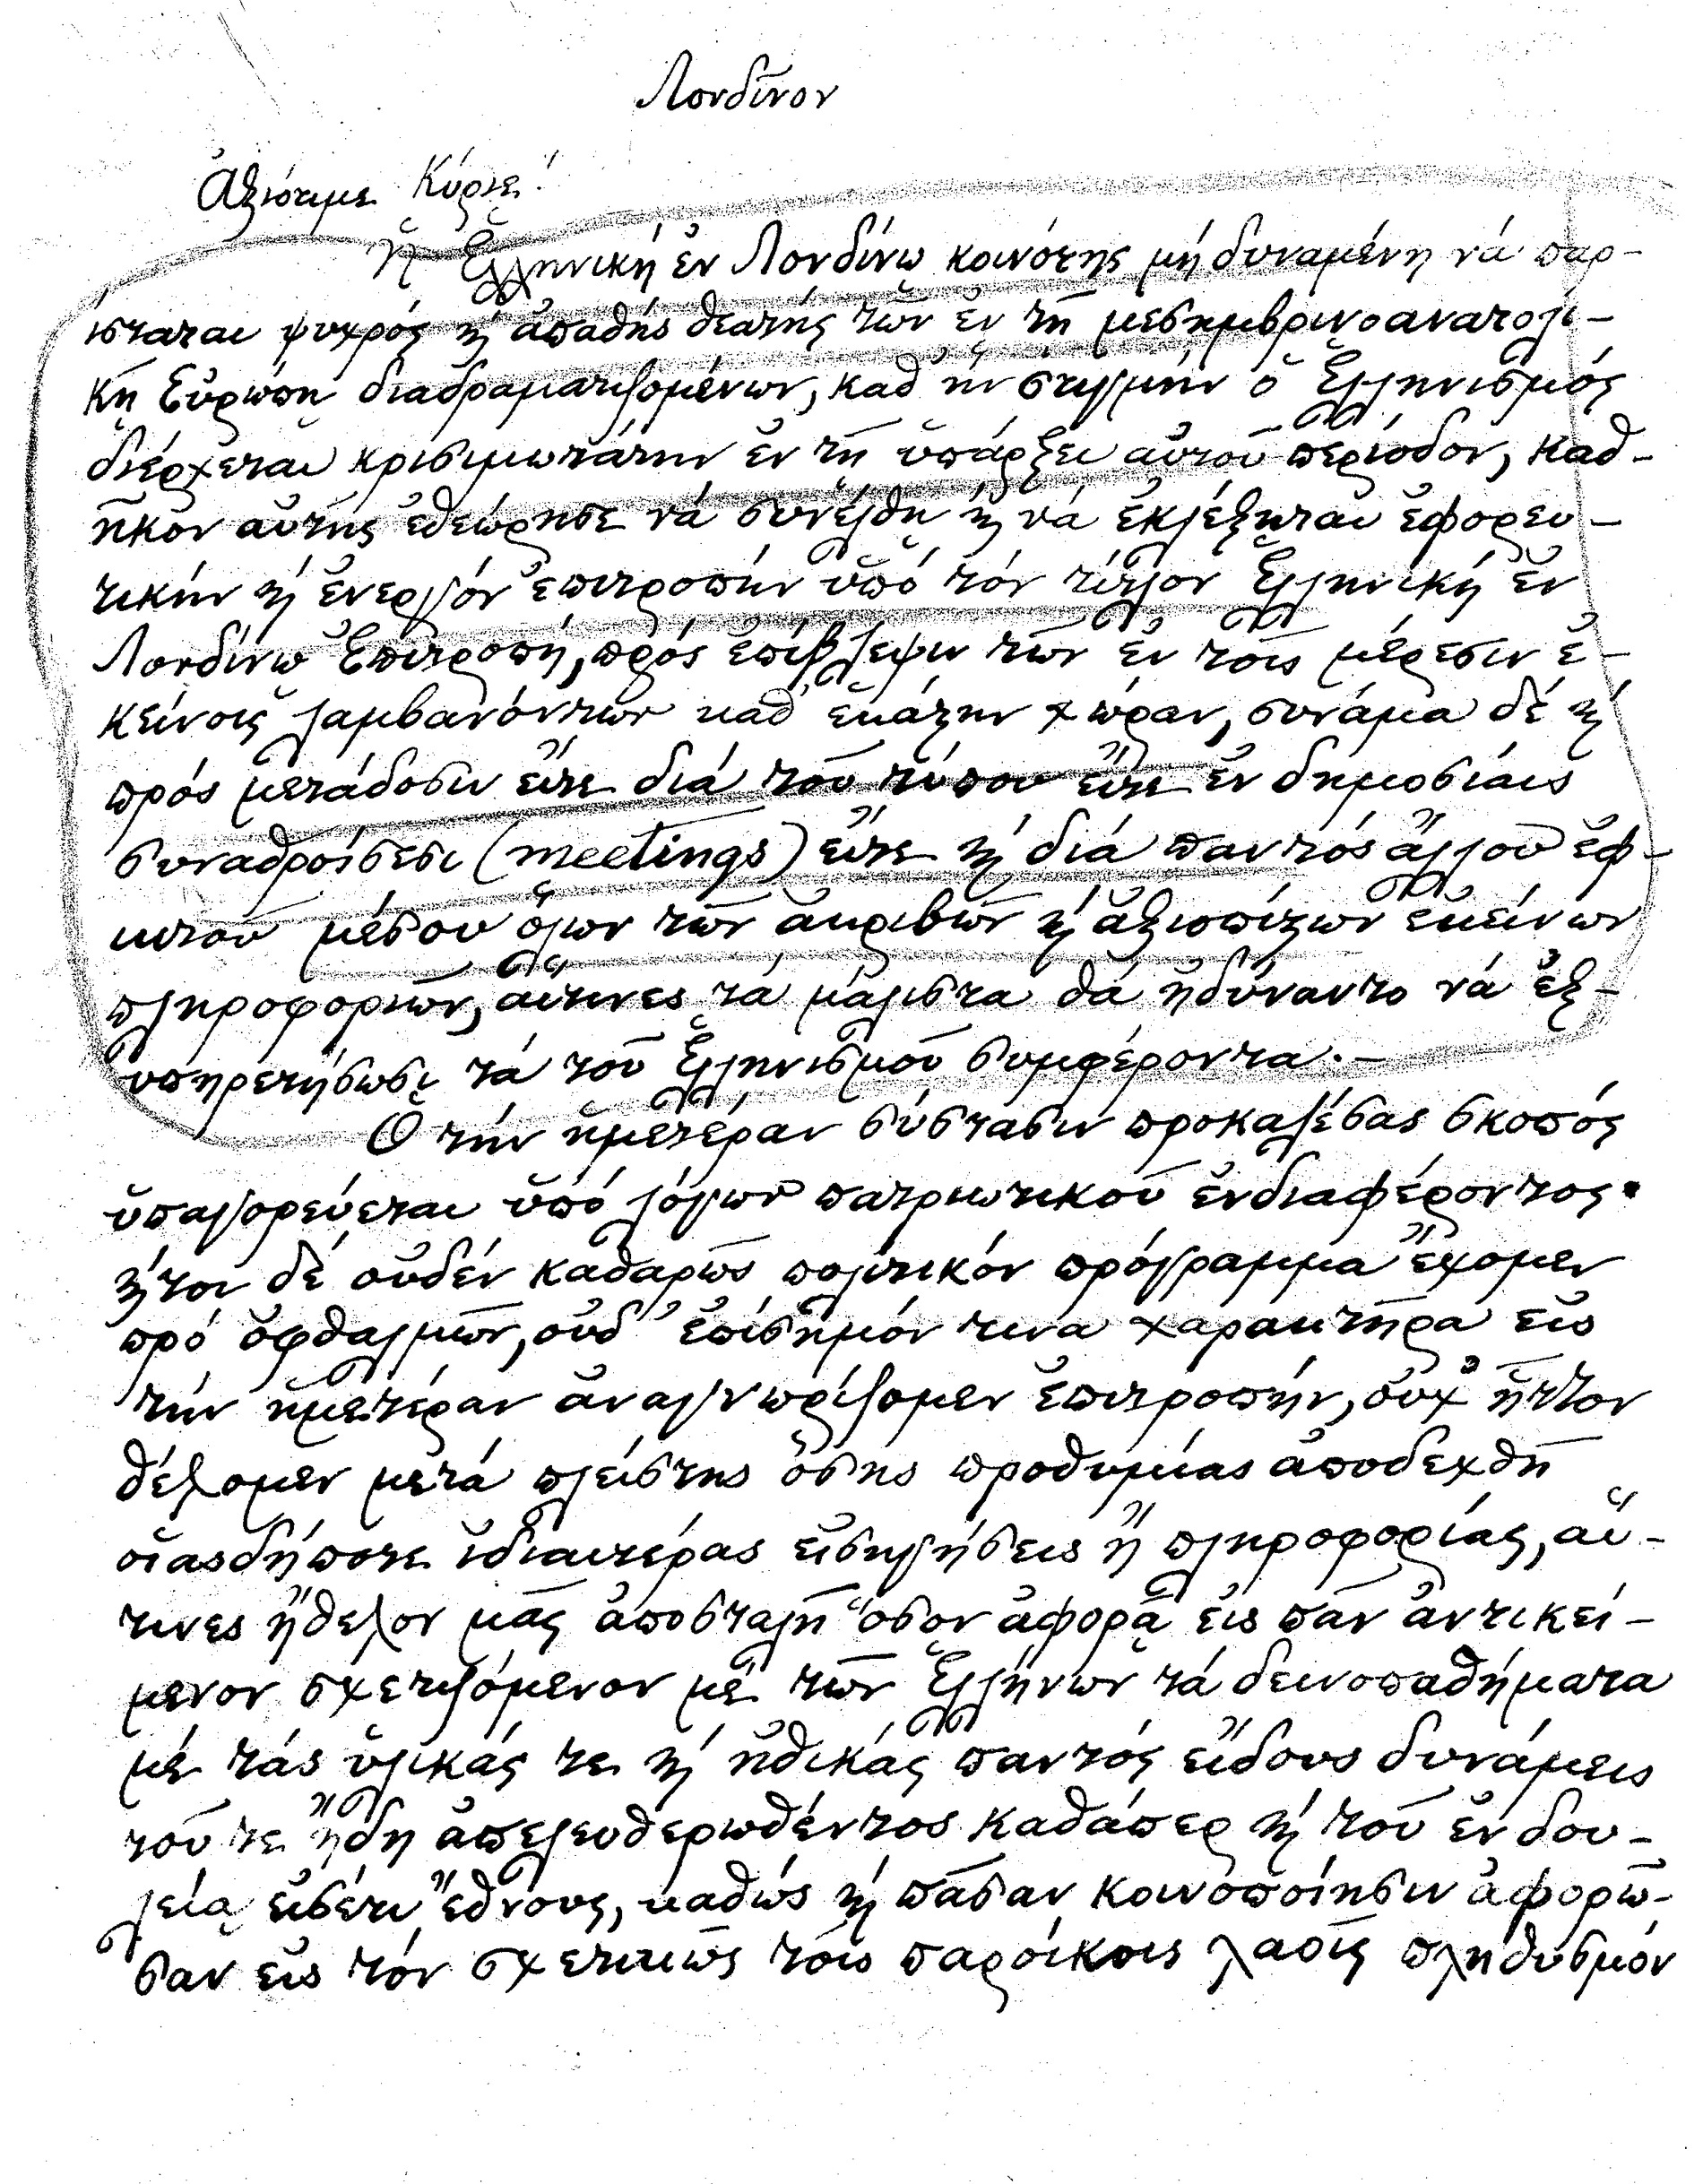 Λονδῖνον
Ἀξιότιμε Κύριε!
Ἡ Ἑλληνική ἐν Λονδίνῳ κοινότης μή δυναμένη νά παρ-
ίσταται ψυχρός κ̀ ἀπαθής θεατής τῶν ἐν τῇ μεσημβρινοανατολι-
κῇ Εὐρώπῃ διαδραματιζομένων, καθ' ἥν στιγμήν ὁ Ἑλληνισμός
διέρχεται κρισιμωτάτην ἐν τῇ ὑπάρξει αὐτοῦ περίοδον, καθ-
ῆκον αὐτῆς ἐθεώρησε νά συνέλθῃ κ̀ νά ἐκλέξηται ἐφορευ-
τικήν κ̀ ἐνεργόν ἐπιτροπήν ὑπό τόν τίτλον Ἑλληνική ἐν
Λονδίνῳ Ἐπιτροπή, πρός ἐπίβλεψιν τῶν ἐν τοῖς μέρεσιν ἐ-
κείνοις λαμβανόντων καθ' ἑκάστην χώραν, συνάμα δέ κ̀
πρός μετάδοσιν εἴτε διά τοῦ τύπου εἴτε ἐν δημοσίαις
συναθροίσεσι (meetings) εἴτε κ̀ διά παντός ἄλλου ἐφ-
ικτοῦ μέσου ὅλων τῶν ἀκριβῶν κ̀ ἀξιοπίστων ἐκείνων
πληροφοριῶν, αἵτινες τά μάλιστα θά ἠδύναντο νά ἐξ-
υπηρετήσωσι τά τοῦ Ἑλληνισμοῦ συμφέροντα.-
Ὁ τήν ἡμετέραν σύστασιν προκαλέσας σκοπός
ὑπαγορεύεται ὑπό λόγων πατριωτικοῦ ἐνδιαφέροντος·
κ̀ τοι δέ οὐδέν καθαρῶς πολιτικόν πρόγραμμα ἔχομεν
πρό ὀφθαλμῶν, οὐδ' ἐπίσημόν τινα χαρακτῆρα εἰς
τήν ἡμετέραν ἀναγνωρίζομεν ἐπιτροπήν, οὐχ' ἧττον
θέλομεν μετά πλείστης ὅσης προθυμίας ἀποδεχθῇ
οἱασδήποτε ἰδιαιτέρας εἰσηγήσεις ἤ πληροφορίας, αἵ-
τινες ἤθελον μᾶς ἀποσταλῇ ὅσον ἀφορᾷ εἰς πᾶν ἀντικεί-
μενον σχετιζόμενον μέ τῶν Ἑλλήνων τά δεινοπαθήματα
μέ τάς ὑλικάς τε κ̀ ἠθικάς παντός εἴδους δυνάμεις
τοῦ τε ἤδη ἀπελευθερωθέντος καθάπερ κ̀ τοῦ ἐν δου-
λείᾳ εἰσέτι ἔθνους, καθώς κ̀ πᾶσαν κοινοποίησιν ἀφορῶ-
σαν εἰς τόν σχετικῶς τοῖς παροίκοις λαοῖς πληθυσμόν